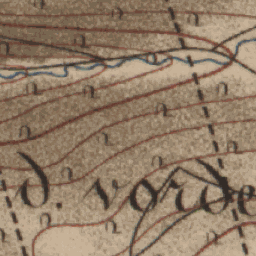 d. vorde